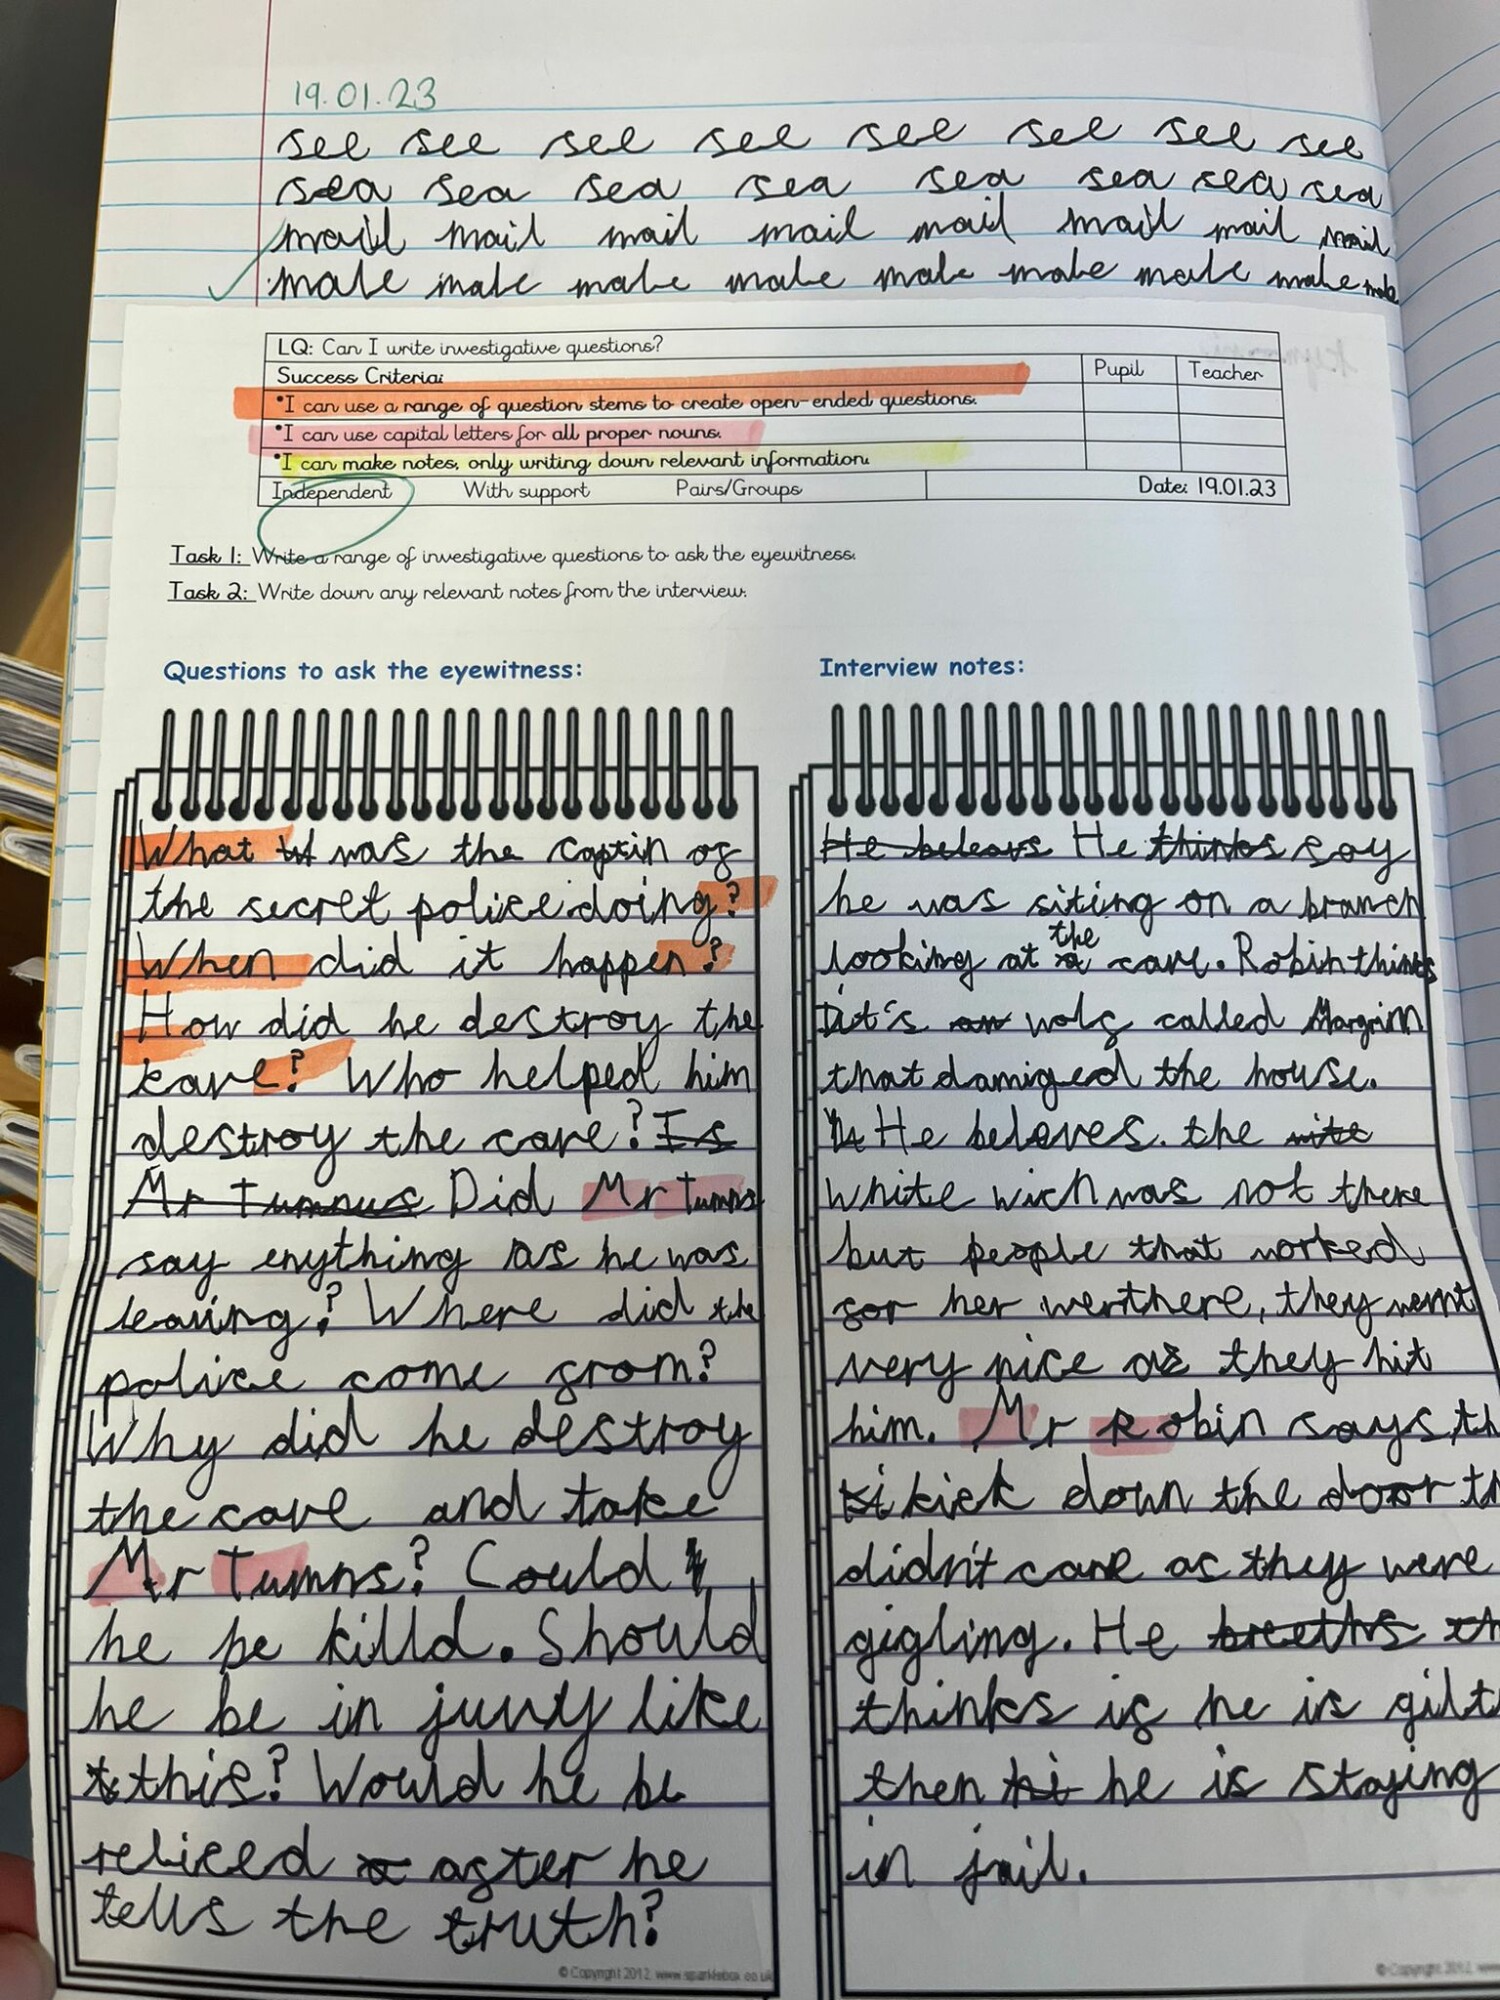 19.01.23
see see see see see see see see
sea sea sea sea sea sea sea sea
mail mail mail mail mail mail mail mail
make make make make make make make make make
LQ: Can I write investigative questions?
Success Criteria: Pupil Teacher
•I can use a range of question stems to create open-ended questions.
•I can use capital letters for all proper nouns.
•I can make notes, only writing down relevant information.
Independent With support Pairs/Groups Date: 19.01.23
Task 1: Write a range of investigative questions to ask the eyewitness.
Task 2: Write down any relevant notes from the interview.
Questions to ask the eyewitness:
What was the captin of
the secret police doing?
When did it happen?
How did he destroy the
cave? Who helped him
destroy the cave? Is
Mr Tumnus Did Mr Tumns
say enything as he was
leaving? Where did the
police come from?
Why did he destroy
the cave and take
Mr Tumns? Could
he be killd. Should
he be in like
this? Would he be
reliced after he
tells the truth?
© Copyright 2012, www.sparklebox.co.uk
Interview notes:
He beleavs He thinks say
he was siting on a branch
looking at a the cave. Robin thinks
it's an wolf called Margrim
that damiged the house.
He beleves. the wite
white wich was not there
but people that worked
for her wer there, they wernt
very nice as they hit
him. Mr Robin says, th
kick down the door th
didn't care as they were
gigling. He th
thinks if he is gilt
then hi he is staying
in jail.
© Copyright 2012, www